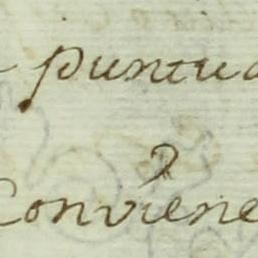 puntua
Conviene